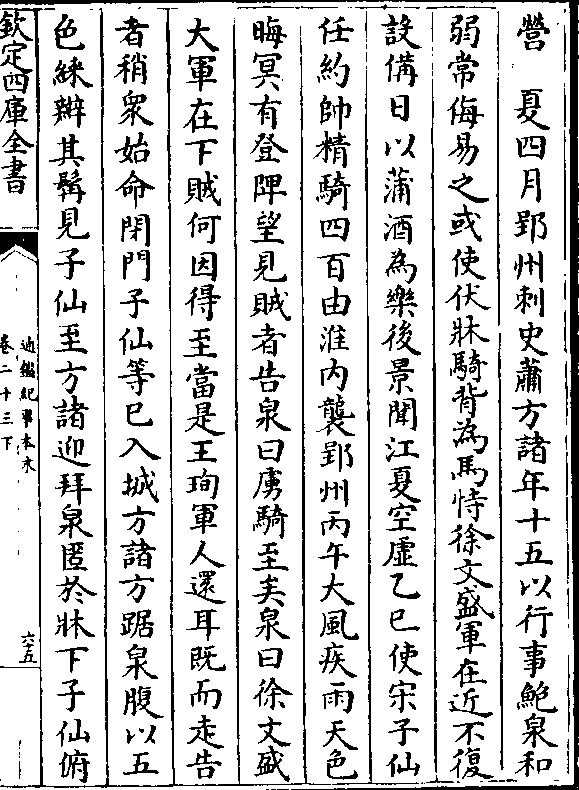 營　夏四月郢州刺史蕭方諸年十五以行事鮑泉和
弱常侮易之或使伏牀騎背為馬恃徐文盛軍在近不復
設備日以蒲酒為樂後景聞江夏空虛乙巳使宋子仙
任約帥精騎四百由淮內襲郢州丙午大風疾雨天色
晦冥有登陴望見賊者告泉曰虜騎至矣泉曰徐文盛
大軍在下賊何因得至當是王珣軍人還耳既而走告
者稍眾始命閉門子仙等已入城方諸方踞泉腹以五
色綵辮其髯見子仙至方諸迎拜泉匿於牀下子仙俯
欽定四庫全書
通鑑紀事本末
卷二十三下
六五